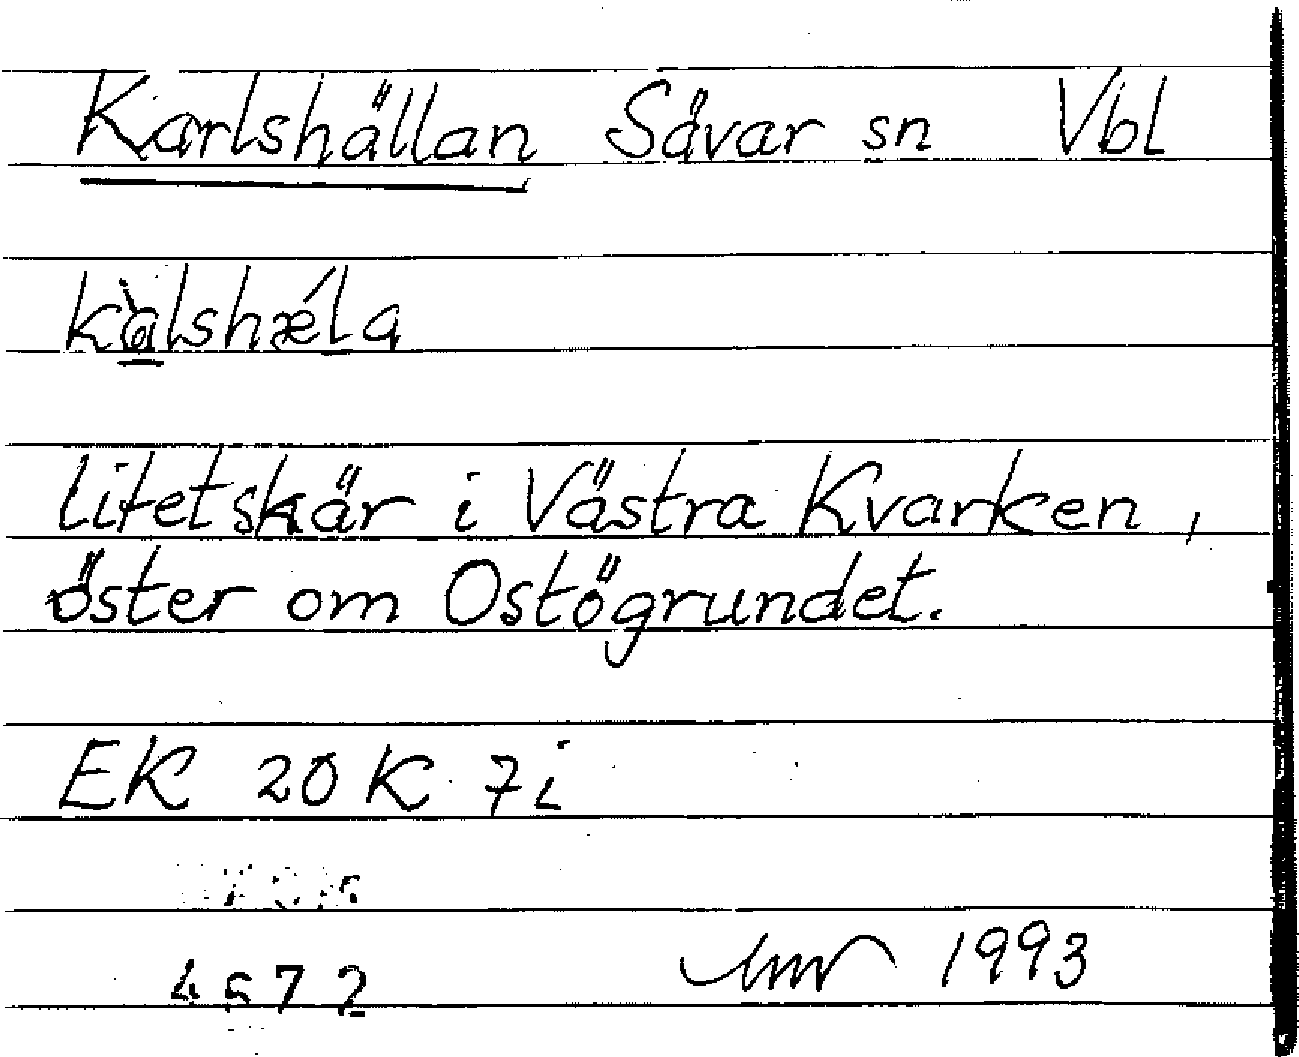 Karlshällan Sävar sn Vbl
kàlshǽla
litet skär i Västra Kvarken,
öster om Ostögrundet.
EK 20 K 7i
4572
1993